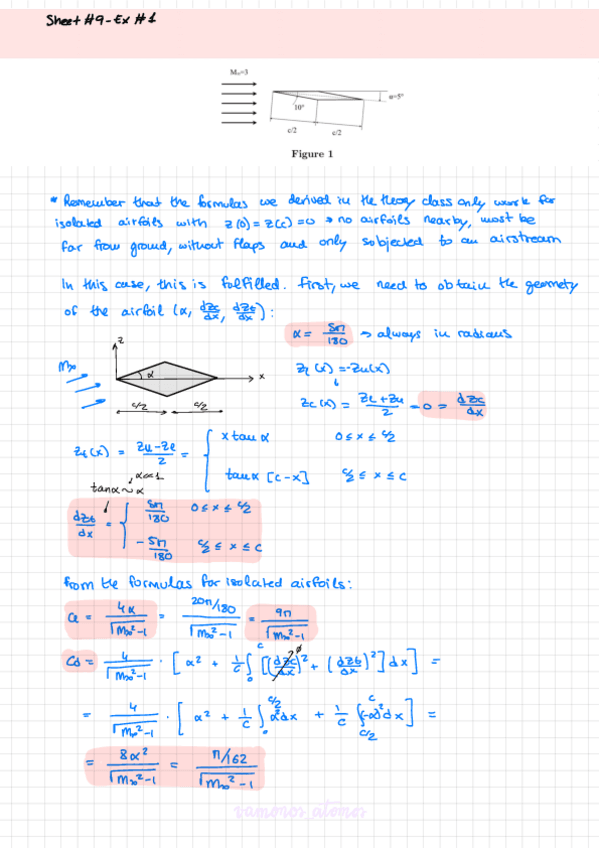 Sheet #9 - Ex #1
M∞=3
10°
θ=5°
c/2 c/2
Figure 1
* Remember that the formulas we derived in the theory class only work for
isolated airfoils with z(0) = z(c) = 0 → no airfoils nearby, most be
far from ground, without flaps and only sobjected to an airstream
In this case, this is folfilled. First, we need to obtain the geometry
of the airfoil (α, dzc/dx, dzt/dx):
α = 5π/180 → always in radians
z
M∞
α
x
c/2 c/2
zl(x) = -zu(x)
zc(x) = zl+zu/2 = 0 = dzc/dx
zt(x) = zu-zl/2 = { x tan α 0 ≤ x ≤ c/2
tan α [c-x] c/2 ≤ x ≤ c
α<<1
tanα ~ α
dzt/dx = { 5π/180 0 ≤ x ≤ c/2
-5π/180 c/2 ≤ x ≤ c
From the formulas for isolated airfoils:
Cl = 4α/√M∞²-1 = 20π/180/√M∞²-1 = 9π/√M∞²-1
Cd = 4/√M∞²-1 · [α² + 1/c ∫₀ᶜ [(dzc/dx)² + (dzt/dx)²] dx] =
= 4/√M∞²-1 · [α² + 1/c ∫₀^c/2 α²dx + 1/c ∫_c/2^c (-α)²dx] =
= 8α²/√M∞²-1 = π/162/√M∞²-1
vamonos_atomos